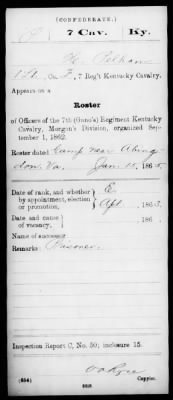 (CONFEDERATE.)
P 7 Cav. Ky.
H. Pelham
1 Lt., Co. F, 7 Reg't Kentucky Cavalry.
Appears on a
Roster
of Officers of the 7th (Gano's) Regiment Kentucky
Cavalry, Morgan's Division, organized Sep-
tember 1, 1862.
Roster dated Camp near Abing-
don, Va. Jan. 15, 1865.
Date of rank, and whether
by appointment, election
or promotion,
E.
Apl , 1863.
Date and cause
of vacancy,
, 186 .
Name of successor
Remarks: Prisoner.
Inspection Report C, No. 50; inclosure 15.
(654)
Copyist.